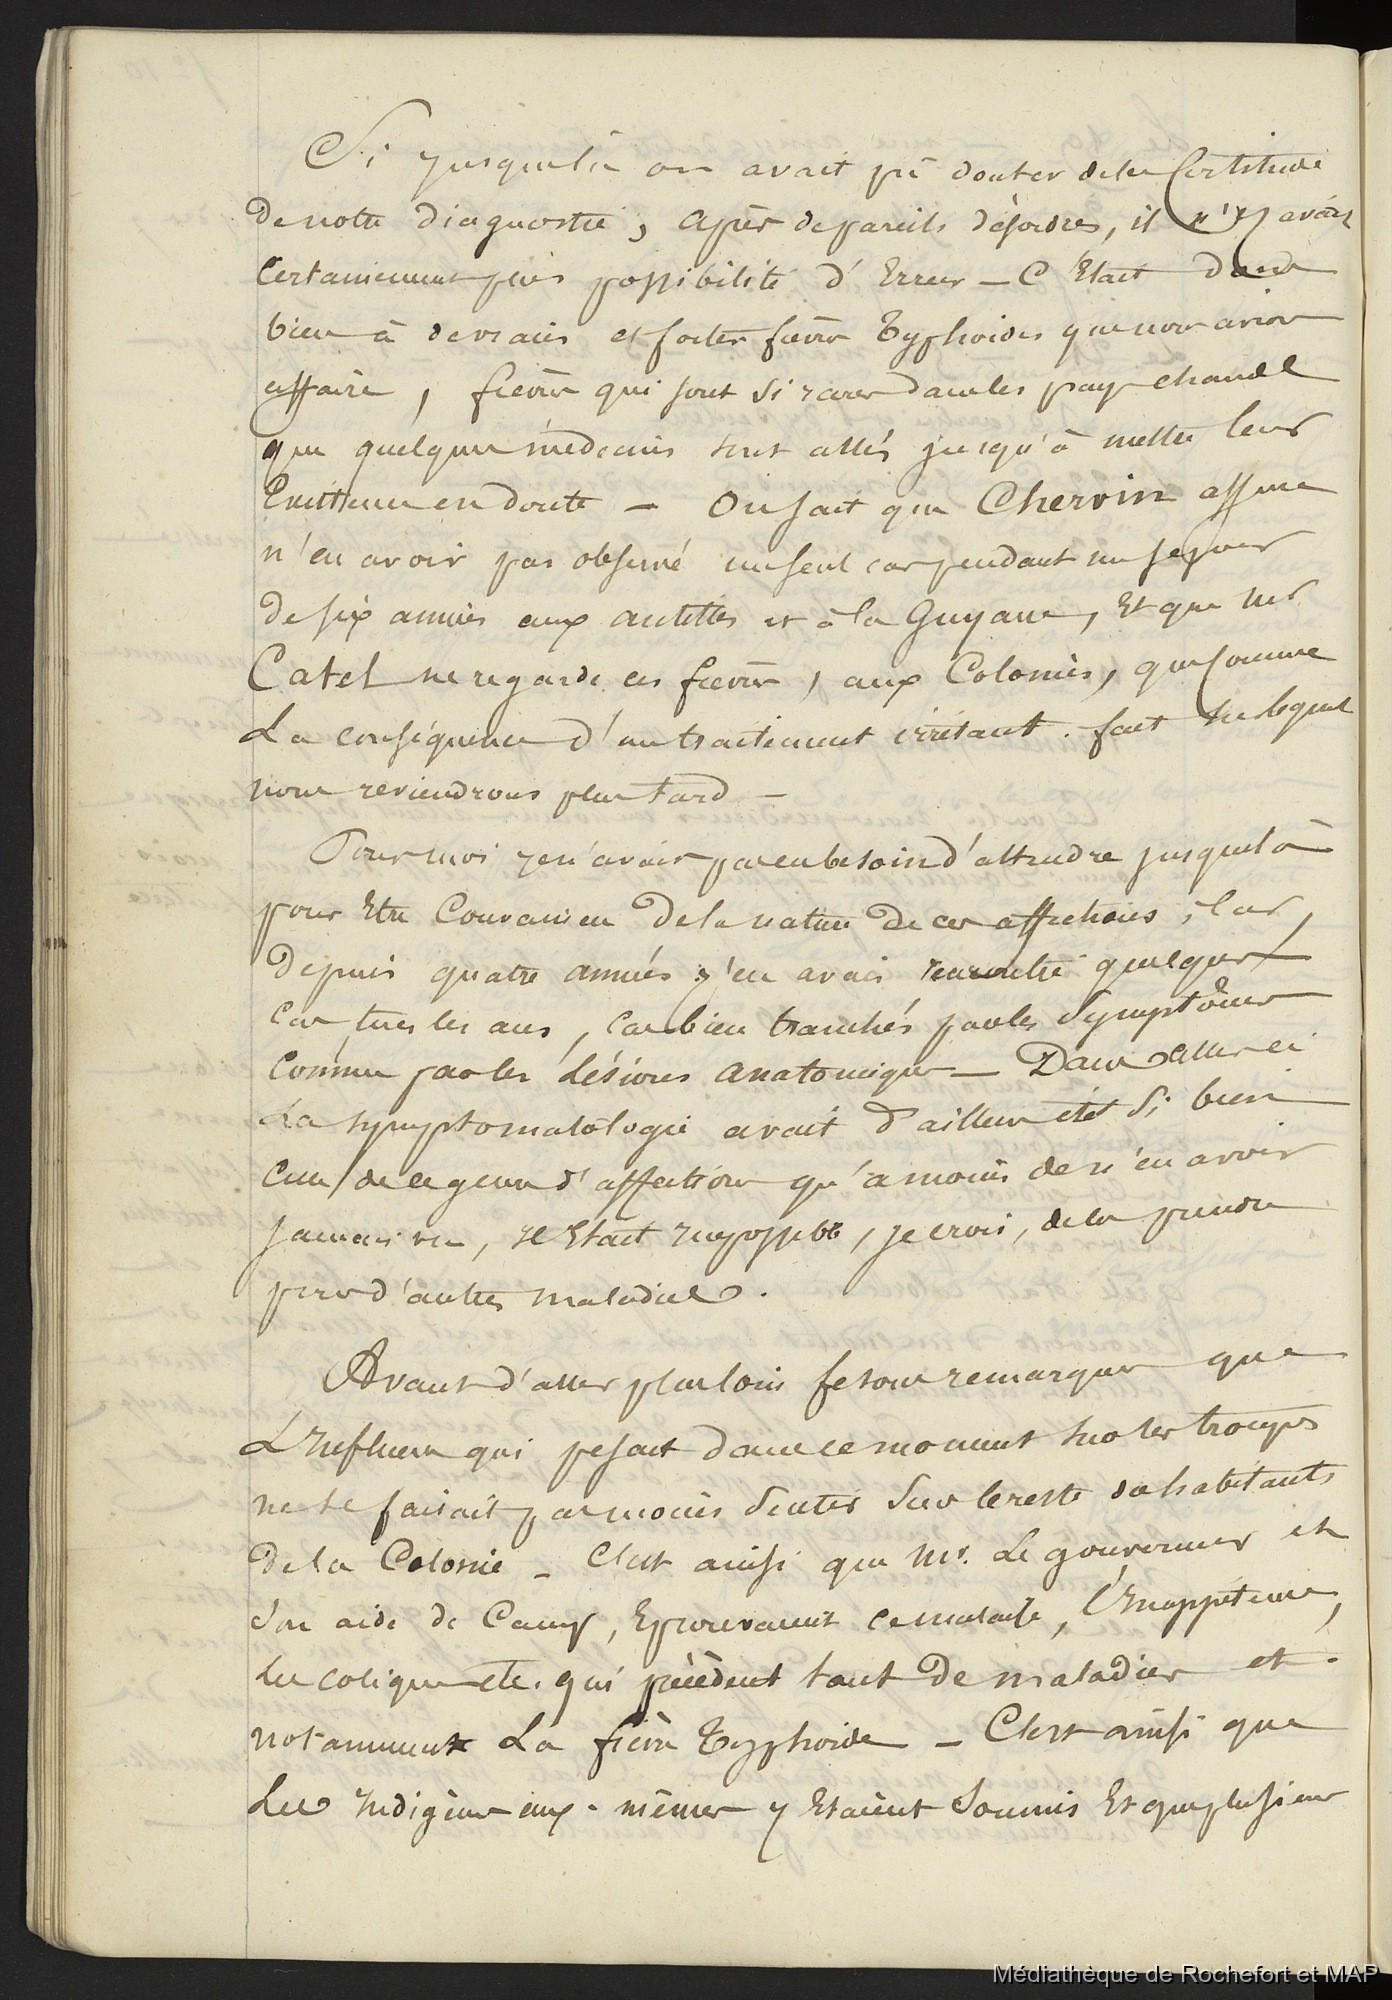 Si jusque là on avait pû douter de la Certitude
de notre diagnostic, après de pareils désordres, il n'y avait
Certainement plus possibilité d'Erreur — C'Etait donc
bien à de vraies et fortes fièvres Typhoides que nous avions
affaire, fièvres qui sont si rares dans les pays chauds
que quelques médecins sont allés jusqu'à mettre leur
Existence en doute — On sait que Chervin assure
n'en avoir pas observé un seul cas pendant un sejour
de six années aux antilles et à la Guyane, Et que Mr
Catel ne regarde ces fièvres, aux Colonies, que Comme
La conséquence d'un traitement irritant. fait sur lequel
nous reviendrons plus tard —
Pour moi je n'avais pas eu besoin d'attendre jusque là
pour Etre Convaincu de la nature de ces affections ; Car,
depuis quatre années j'en avais rencontré quelques
Cas tous les ans, Cas bien tranchés par les Symptômes
Comme par les Lésions anatomiques — Dans celles ci
La symptomatologie avait d'ailleurs été si bien
Celle de ce genre d'affections qu'a moins de n'en avoir
jamais vu, il Etait impossible, je crois, de les prendre
pour d'autres maladies.
Avant d'aller plus loin fesons remarquer que
L'Influence qui pesait dans ce moment sur les troupes
ne se faisait pas moins sentir sur le reste des habitants
de la Colonie — C'est ainsi que Mr. Le gouverneur et
son aide de Camp, Eprouvaient ce malaise, l'Inappétence,
Les coliques etc. qui précèdent tant de maladies et
notamment La fièvre Typhoide — C'est ainsi que
Les Indigènes eux-mêmes y Etaient Soumis Et que plusieurs
Médiathèque de Rochefort et MAP